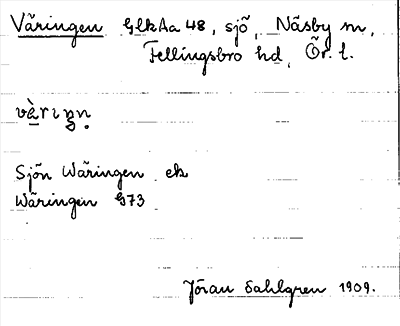 Väringen GlkAa 48, sjö, Näsby sn,
Fellingsbro hd, Ör. l.
vàrıŋn̥
Sjön Wäringen ek
Wäringen G73
Jöran Sahlgren 1909.